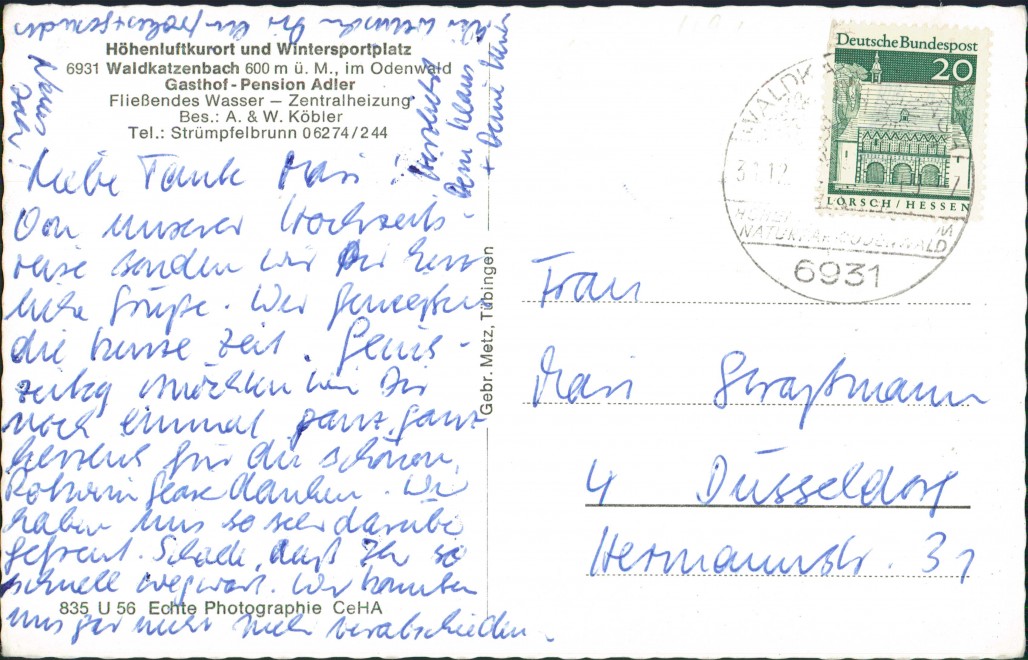 Höhenluftkurort und Wintersportplatz
6931 Waldkatzenbach 600 m ü. M., im Odenwald
Gasthof - Pension Adler
Fließendes Wasser – Zentralheizung
Bes.: A. & W. Köbler
Tel.: Strümpfelbrunn 06274/244
Liebe Tante Mari!
Von unserer Hochzeits-
reise senden wir Dir herz
liche Grüße. Wir genießen
die kurze Zeit. Gleich-
zeitig möchten wir Dir
noch einmal ganz, ganz
herzlich für die schönen
danken. Wir
haben uns so sehr darüber
gefreut. Schade, daß Ihr so
schnell wegwart. Wir konnten
uns gar nicht mehr verabschieden.
Wir wünschen Dir ein
Neues
Jahr!
Herzlichst
Dein Klaus
+ Deine
835 U 56 Echte Photographie CeHA
Gebr. Metz, Tübingen
Deutsche Bundespost
20
LORSCH/HESSEN
31.12.
NATURPARK ODENWALD
6931
Frau
Mari Straßmann
4 Düsseldorf
Hermannstr. 31